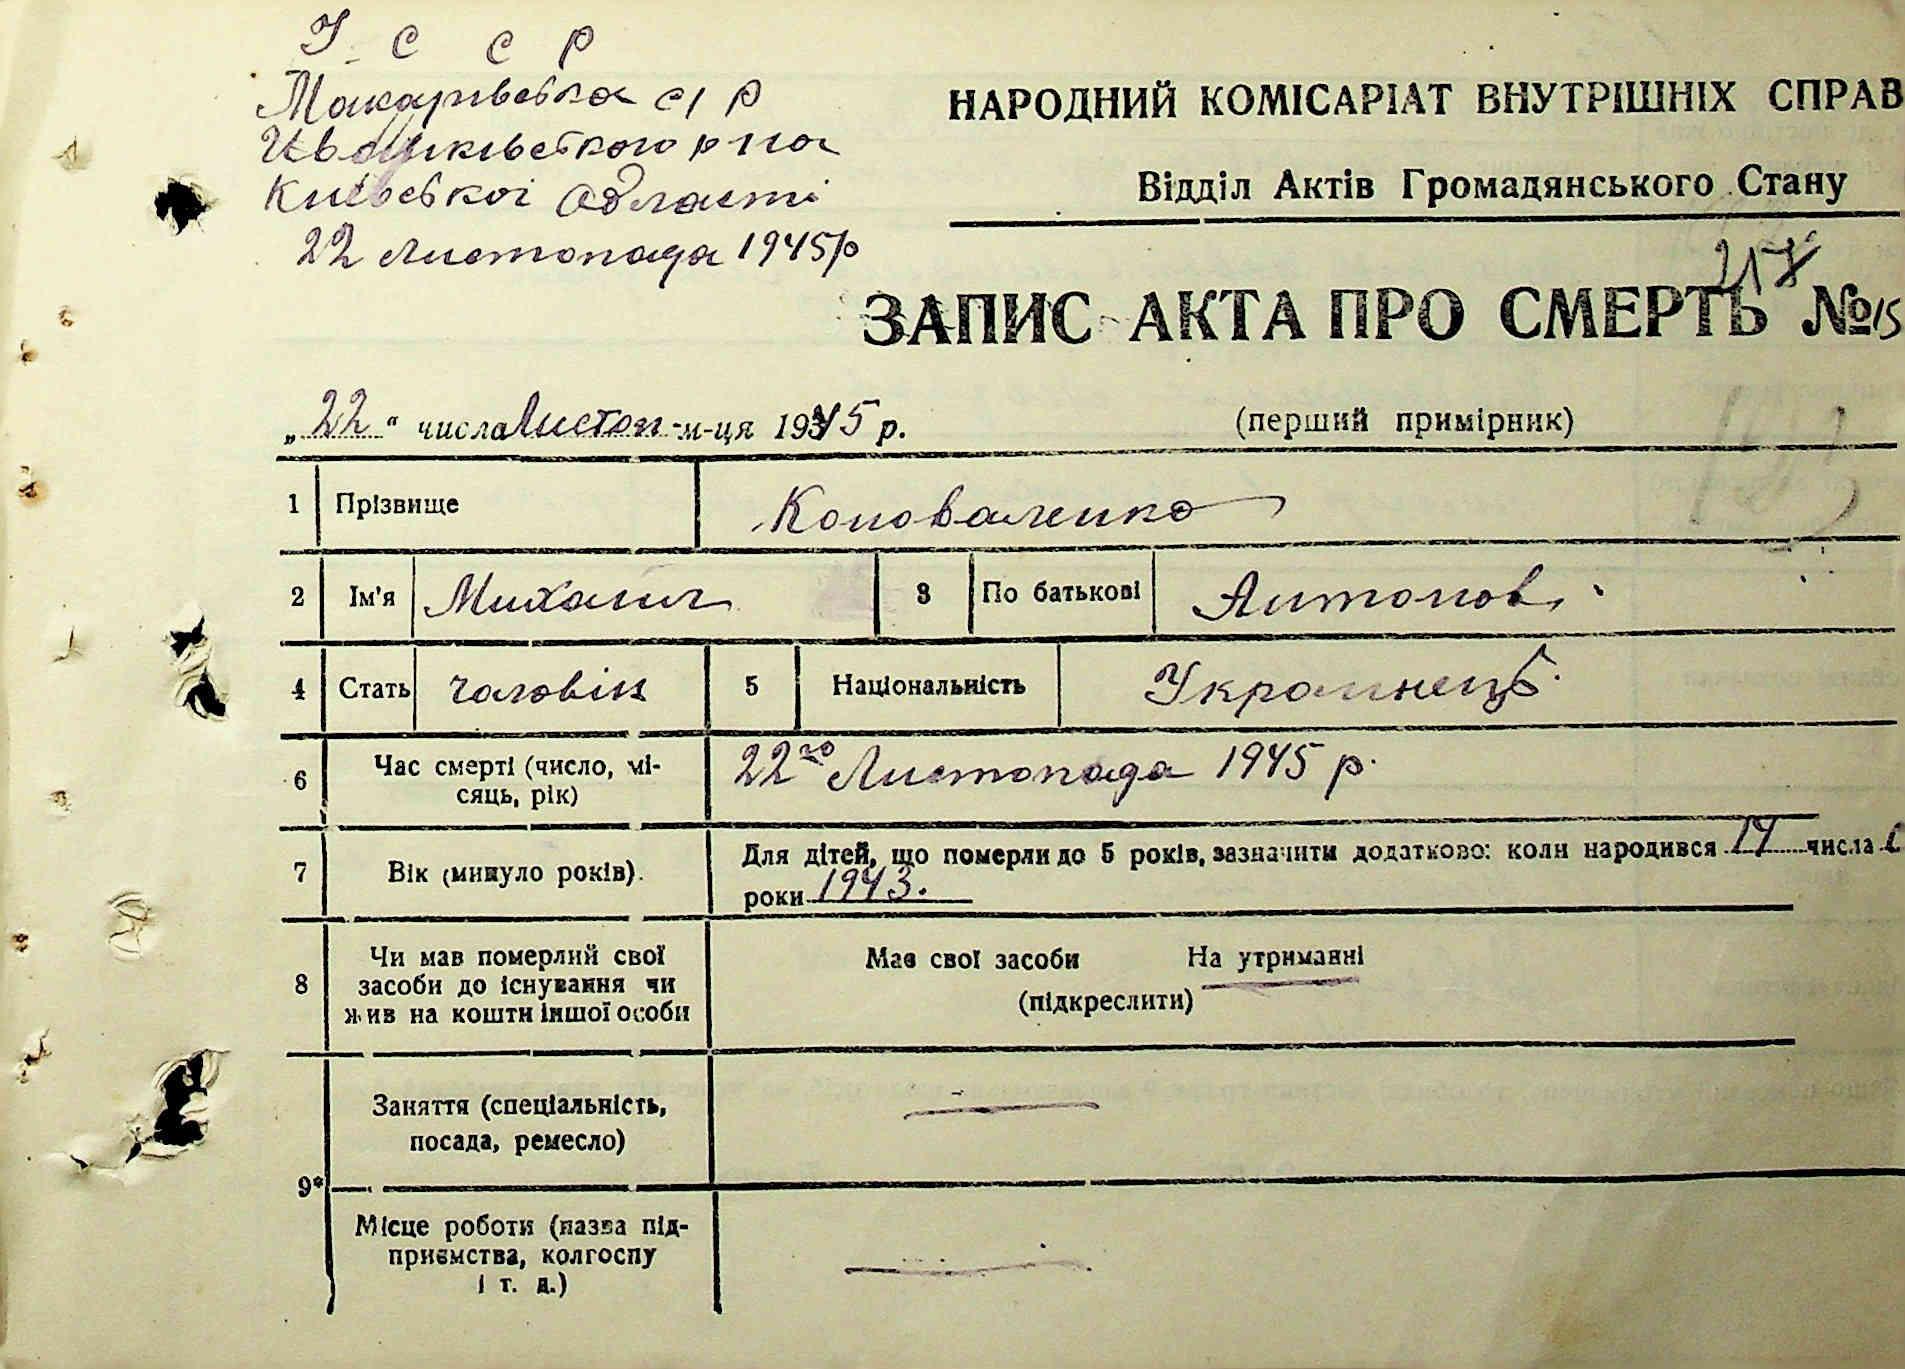 У С С Р
Макарівська с/р
Іванківського р-на
Київської області
22 Листопада 1945 р
НАРОДНИЙ КОМІСАРІАТ ВНУТРІШНІХ СПРАВ
Відділ Актів Громадянського Стану
217
ЗАПИС АКТА ПРО СМЕРТЬ № 15
„22“ числа Листоп м-ця 1945 р.
(перший примірник)
1 Прізвище Коноваленко
2 Ім'я Михаил 3 По батькові Антонов.
4 Стать чоловік 5 Національність Украинець.
6 Час смерті (число, мі-
сяць, рік) 22го Листопада 1945 р.
7 Вік (минуло років). Для дітей, що померли до 5 років, зазначити додатково: коли народився 17 числа
роки 1943.
8 Чи мав померлий свої
засоби до існування чи
жив на кошти іншої особи
Мав свої засоби На утриманні
(підкреслити)
9*
Заняття (спеціальність,
посада, ремесло)
Місце роботи (назва під-
приємства, колгоспу
і т. д.)